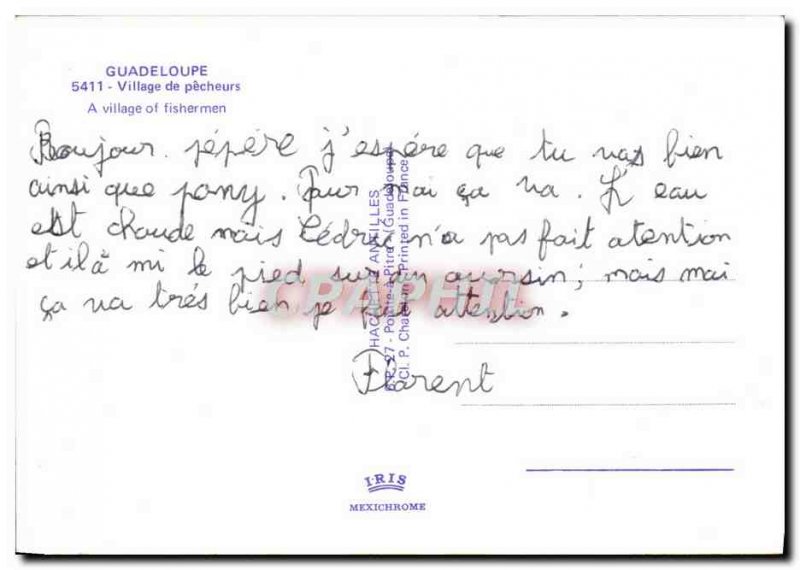 GUADELOUPE
5411 - Village de pêcheurs
A village of fishermen
Boujour pépére j'espére que tu vas bien
ainsi que pony. Pour moi ça va. L'eau
est chaude mais Cédric n'a pas fait atention
et il à mi le pied sur un oursin; mais moi
ça va trés bien je fai attention.
Florent
HACHETTE ANTILLES
B.P. 27 - Pointe-à-Pitre (Guadeloupe)
Cl. P. Printed in France
CPAPHIL
IRIS
MEXICHROME